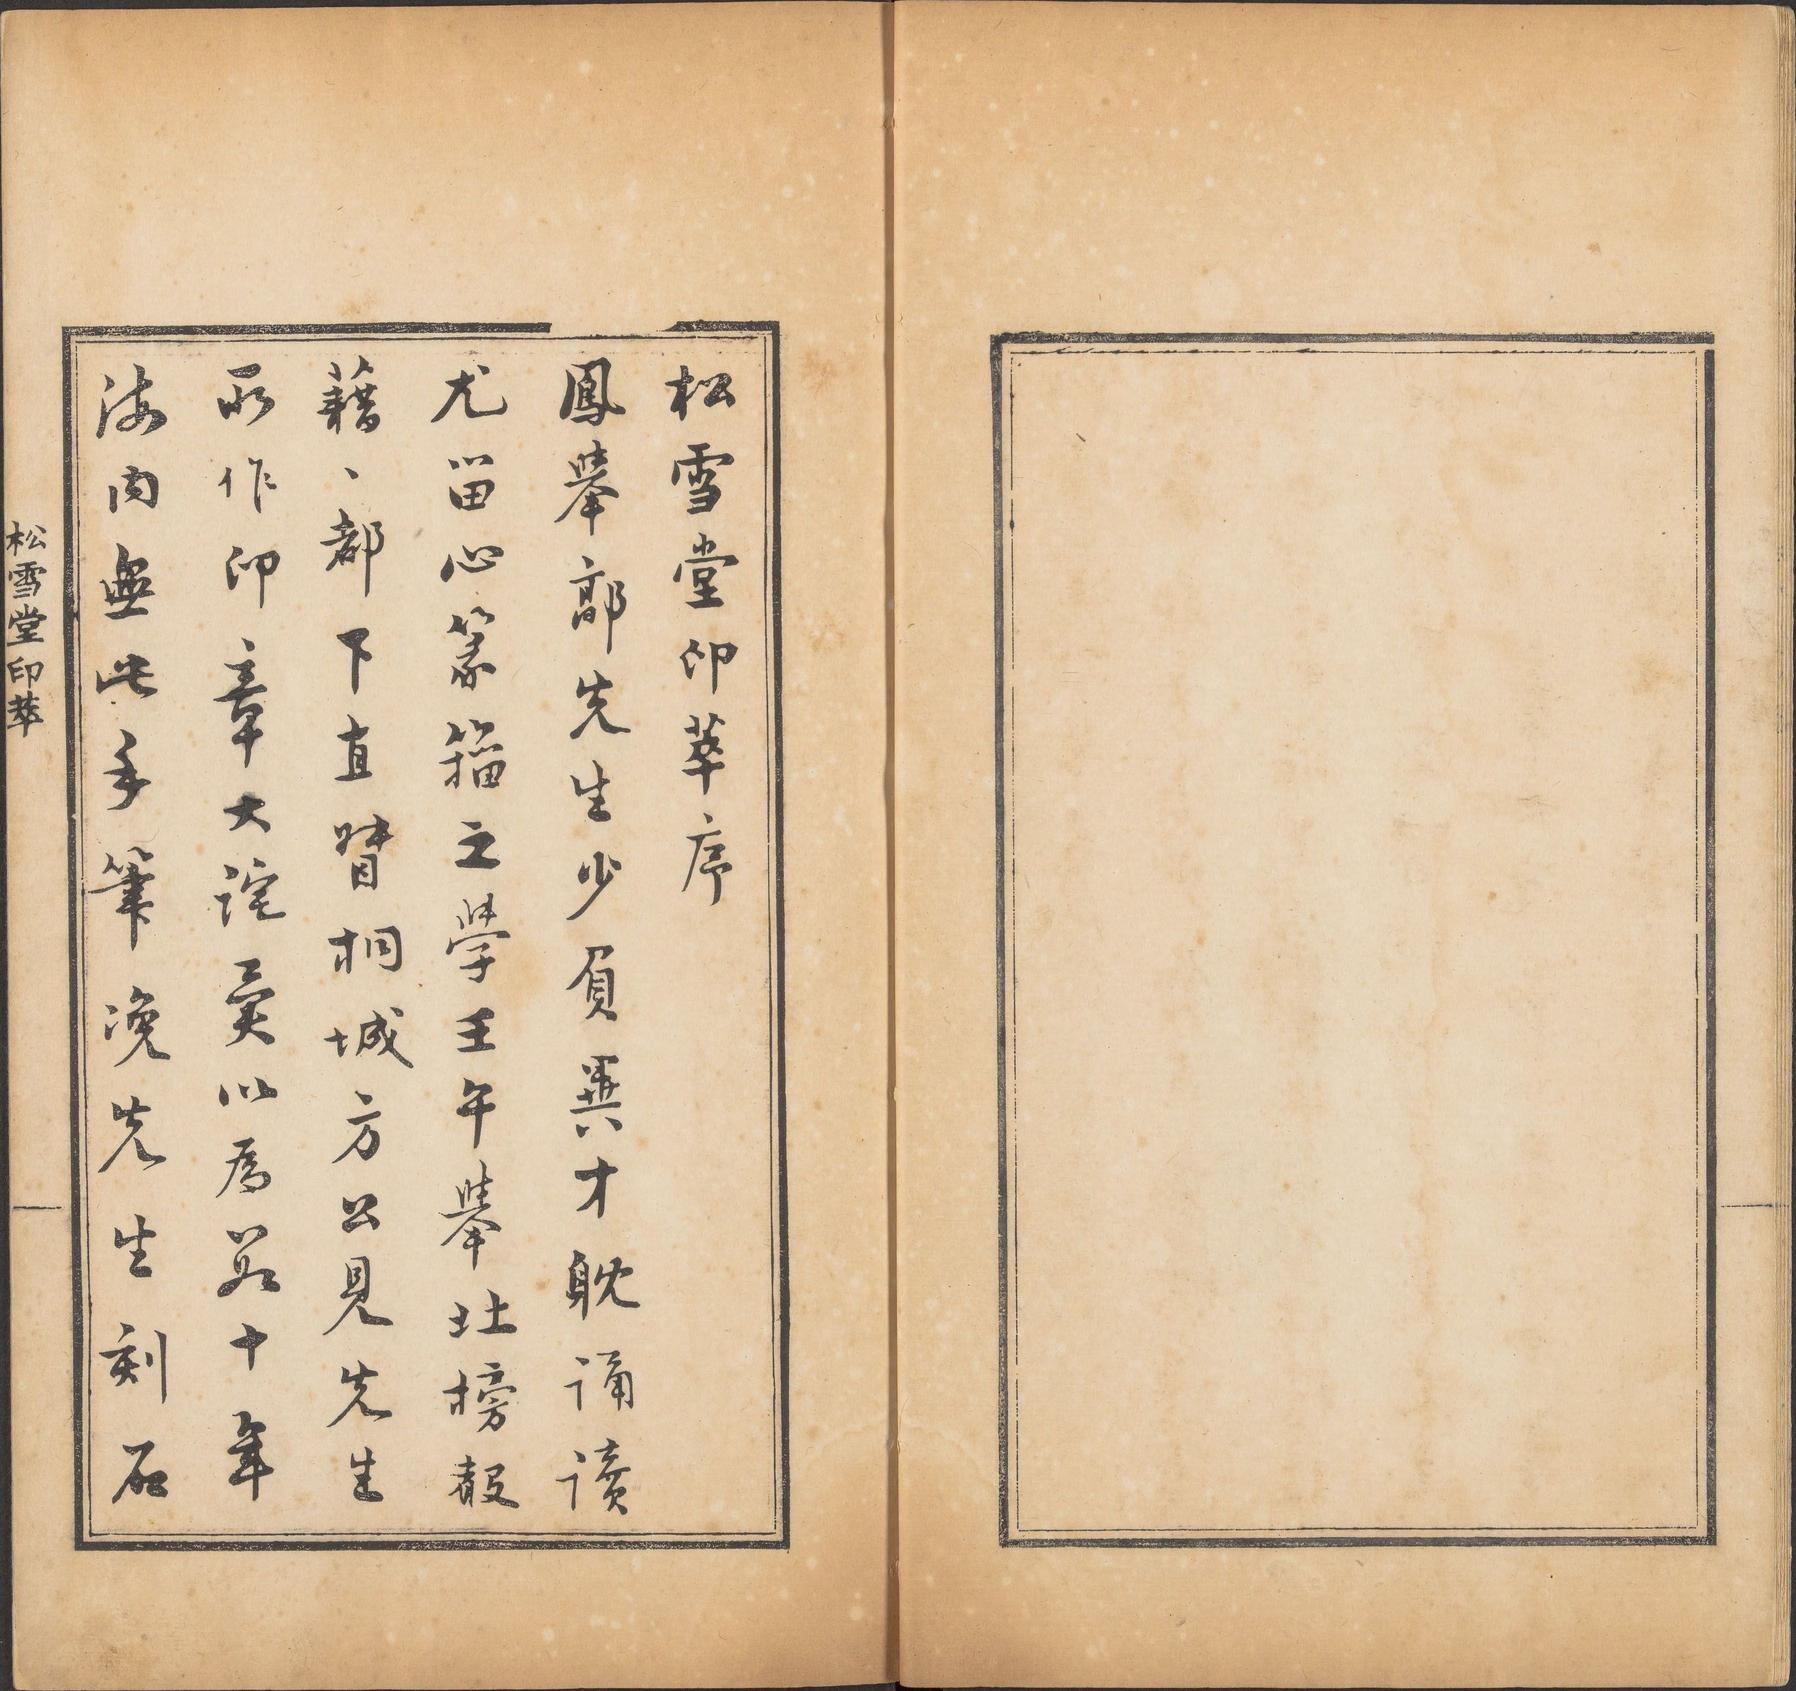 松雪堂印萃序
鳳舉郭先生少負異才耽誦讀
尤畱心篆籀之學壬午舉北榜聲
藉、都下直督桐城方公見先生
所作印章大詫異以為数十年
海内無此手筆浼先生刻石
松雪堂印萃